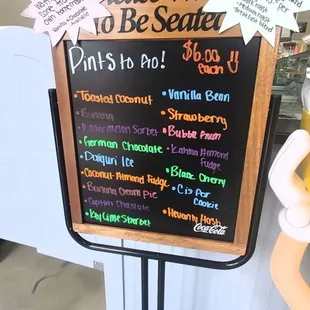 to Be Seated
Pints to Go!
$6.00
each
• Toasted Coconut
• Banana
• Watermelon Sorbet
• German Chocolate
• Daiquri Ice
• Coconut Almond Fudge
• Banana Cream Pie
• Captain Chocolate
• Key Lime Sherbet
• Vanilla Bean
• Strawberry
• Bubble Gum
• Kahlua Almond
Fudge
• Black Cherry
• C is for
Cookie
• Heavenly Hash
Coca-Cola